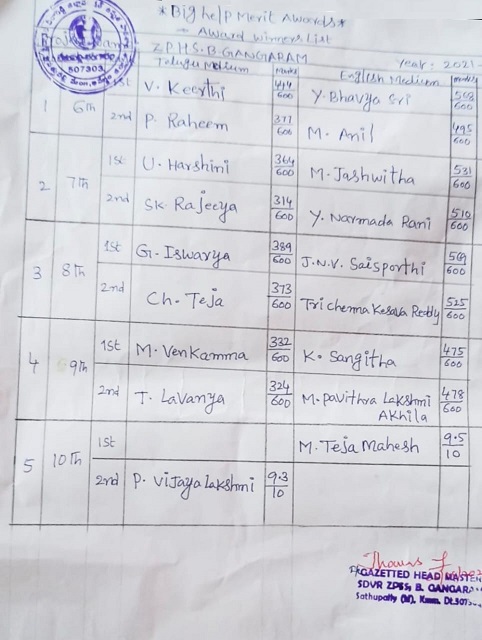 *Big help Merit Awards*
Award winners list
Z.P.H.S. B. GANGARAM
Year: 2021-
Telugu Medium Marks English Medium marks
1 6th 1st V. Keerthi 414/600 Y. Bhavya Sri 508/600
2nd P. Raheem 377/600 M. Anil 495/600
2 7th 1st U. Harshini 364/600 M. Jashwitha 531/600
2nd SK. Rajeeya 314/600 Y. Narmada Rani 510/600
3 8th 1st G. Iswarya 389/600 J.N.V. Saisporthi 569/600
2nd Ch. Teja 373/600 Tricherma Kesava Reddy 525/600
4 9th 1st M. Venkamma 332/600 K. Sangitha 475/600
2nd T. Lavanya 324/600 M. Pavithra Lakshmi
Akhila 478/600
5 10th 1st M. Teja Mahesh 9.5/10
2nd P. Vijaya Lakshmi 9.3/10
507303
GAZETTED HEAD MASTER
SDVR ZPSS, B. GANGARA
Sathupally (M), Kmm. Dt.507